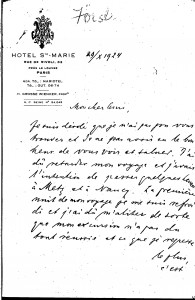 HOTEL Ste-MARIE
RUE DE RIVOLI, 83
PRÈS LE LOUVRE
PARIS
29/X 1924
Mon cher ami,
Je suis désolé que je n'ai pas pu vous
trouver et je ne pas avoir eu le bon
heur de vous voir et saluer. J'ai
dû retarder mon voyage et j'avais
l'intention de passer quelques jours
à Metz et à Nancy. La première
nuit de mon voyage je me suis refroi
di et j'ai dû m'aliter de sorte
que mon excursion n'a pas du
tout réussi et ce que je regrette
le plus,
c'est